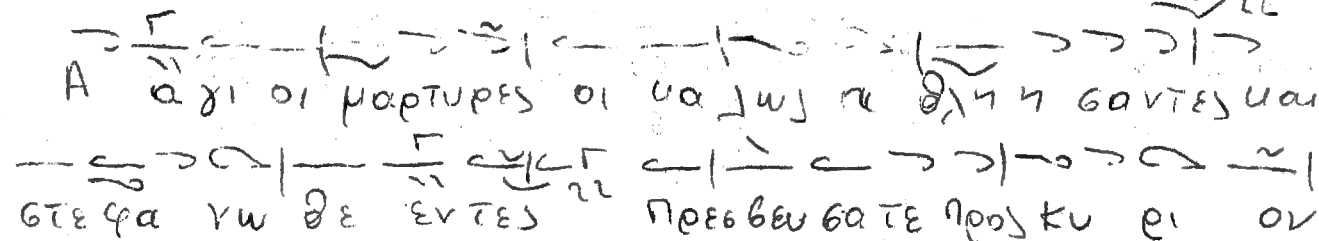 Α α γι οι μαρτυρες οι κα λως α θλη η σαντες και
στε φα νω θε εντες πρεσβευ σατε προς κυ ρι ον